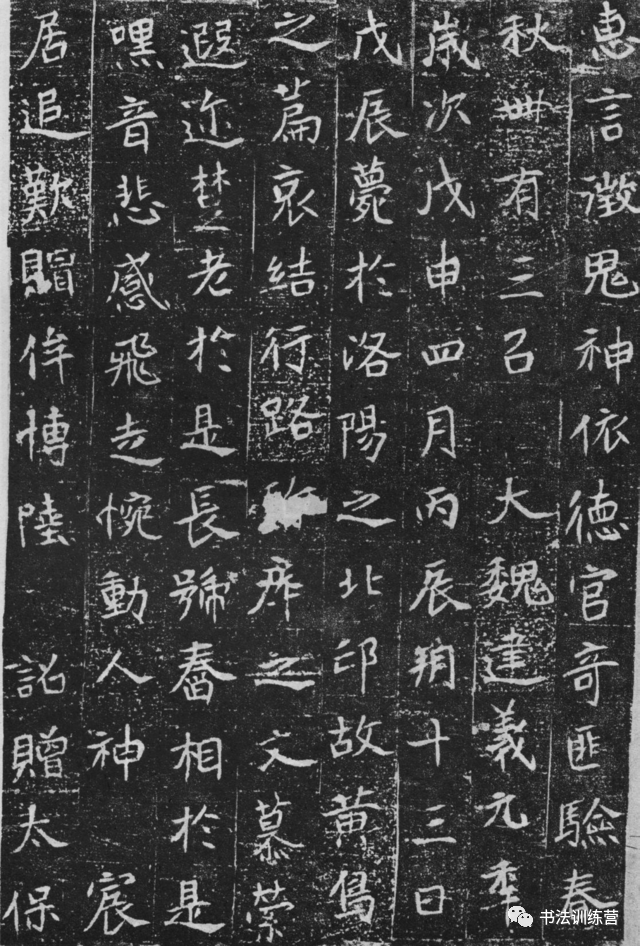 惠言澂鬼神依德官奇匪驗春
秋卌有三召 大魏建義元秊
歲次戊申四月丙辰朔十三日
戊辰薨於洛陽之北邙故黃鳥
之篇哀結行路之文慕縈
遐迩楚老於是長號舂相於是
嘿音悲感飛走惋動人神 宸
居追歎賵侔博陸 詔贈太保
书法训练营